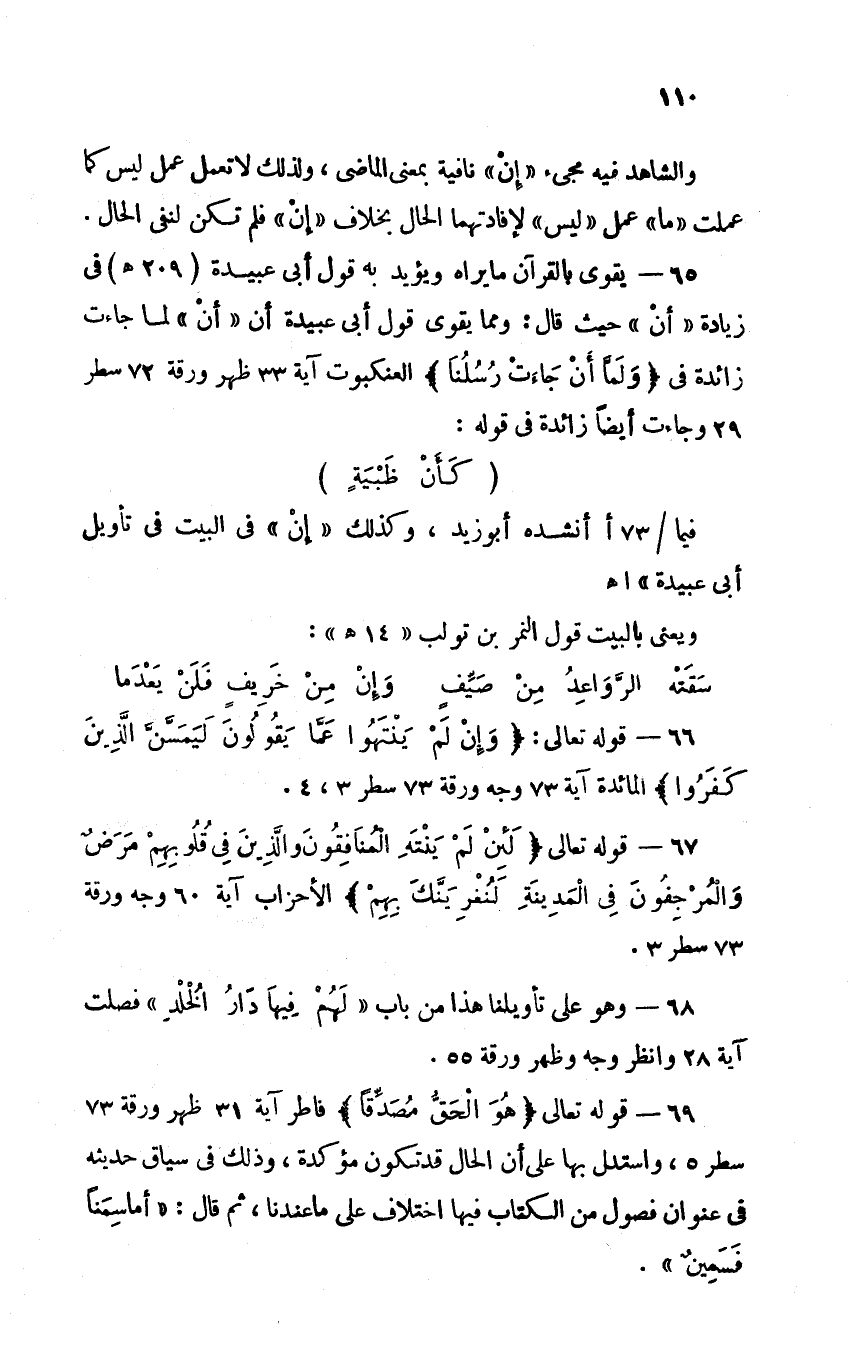 ١١٠
والشاهد فيه مجىء «إِنْ» نافية بمعنى الماضى ، ولذلك لا تعمل عمل ليس كما
عملت «ما» عمل «ليس» لإفادتهما الحال بخلاف «إِنْ» فلم تكن لنفى الحال .
٦٥ — يقوى بالقرآن ما يراه ويؤيد به قول أبى عبيدة ( ٢٠٩ ھ ) فى
زيادة « أنْ » حيث قال : ومما يقوى قول أبى عبيدة أن « أنْ » لما جاءت
زائدة فى ﴿ وَلَمَّا أَنْ جَاءَتْ رُسُلُنَا ﴾ العنكبوت آية ٣٣ ظهر ورقة ٧٢ سطر
٢٩ وجاءت أيضاً زائدة فى قوله :
( كَأَنْ ظَبْيَةٍ )
فيما / ٧٣ أ أنشده أبوزيد ، وكذلك « إِنْ » فى البيت فى تأويل
أبى عبيدة » ا ه
ويعنى بالبيت قول النمر بن تولب « ١٤ ھ » :
سَقَتْه الرَّوَاعِدُ مِنْ صَيِّفٍ وَإِنْ مِنْ خَرِيفٍ فَلَنْ يَعْدَما
٦٦ — قوله تعالى : ﴿ وَإِنْ لَمْ يَنْتَهُوا عَمَّا يَقُولُونَ لَيَمَسَّنَّ الَّذِينَ
كَفَرُوا ﴾ المائدة آية ٧٣ وجه ورقة ٧٣ سطر ٣ ، ٤ .
٦٧ — قوله تعالى ﴿ لَئِنْ لَمْ يَنْتَهِ الْمُنَافِقُونَ والَّذِينَ فِى قُلُوبِهِمْ مَرَضٌ
وَالْمُرْجِفُونَ فِى الْمَدِينَةِ لَنُغْرِيَنَّكَ بِهِمْ ﴾ الأحزاب آية ٦٠ وجه ورقة
٧٣ سطر ٣ .
٦٨ — وهو على تأويلنا هذا من باب « لَهُمْ فِيهَا دَارُ الْخُلْدِ » فصلت
آية ٢٨ وانظر وجه وظهر ورقة ٥٥ .
٦٩ — قوله تعالى ﴿ هُوَ الْحَقُّ مُصَدِّقًا ﴾ فاطر آية ٣١ ظهر ورقة ٧٣
سطر ٥ ، واستدل بها على أن الحال قد تكون مؤكدة ، وذلك فى سياق حديثه
فى عنوان فصول من الكتاب فيها اختلاف على ما عندنا ، ثم قال : « أما سِمَناً
فَسَمِينٌ » .